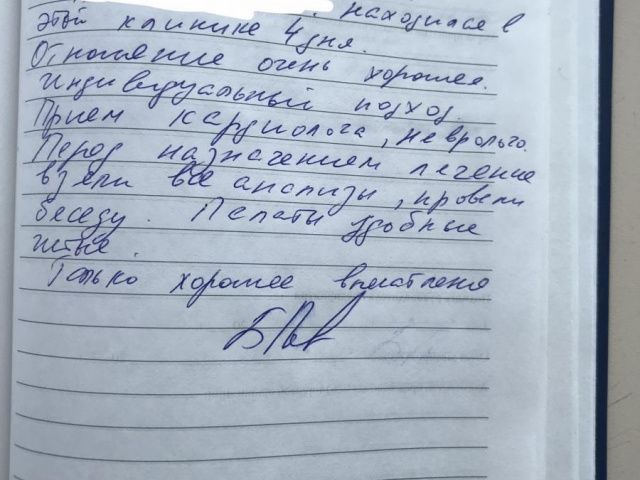 находилась в
этой клинике 4 дня.
Отношение очень хорошее.
индивидуальный подход.
Прием кардиолога, невролога.
Перед назначением лечение
взяли все анализы, провели
беседу. Палаты удобные
Только хорошее впечатление